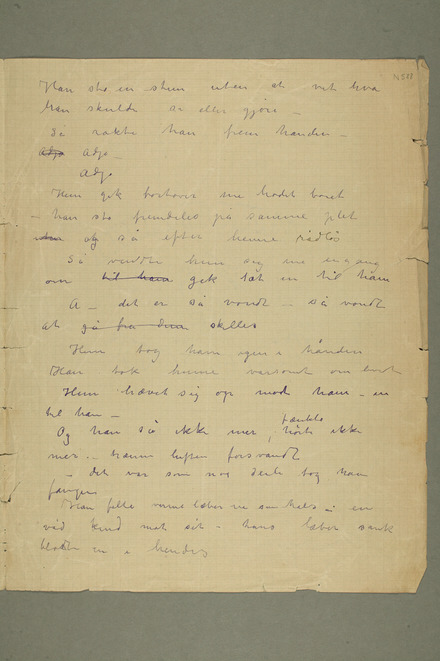 Han sto en stun uten at vite hva
han skulde si eller gjøre –
Så rakte han frem hånden –
Adjø Adjø –
Adjø
Hun gik bortover me hodet bøiet
– han sto fremdeles på samme plet
og så efter henne rådløs
Så vendte hun sig me engang
om til ham gik tæt in til ham
A – det er så vondt – så vondt
at gå fra dem skilles
Hun tog ham igen i hånden
Han tok henne varsomt om livet
Hun hævet sig op mod ham – in
til ham –
følte
Og han så ikke mer, hørte ikke
mer – havn luften forsvandt
– det var som nog deilig tog ham
fangen
Han følte varme læber ve sin hals – en
våd kind mot sit – hans læber sank
bløtt in i hendes